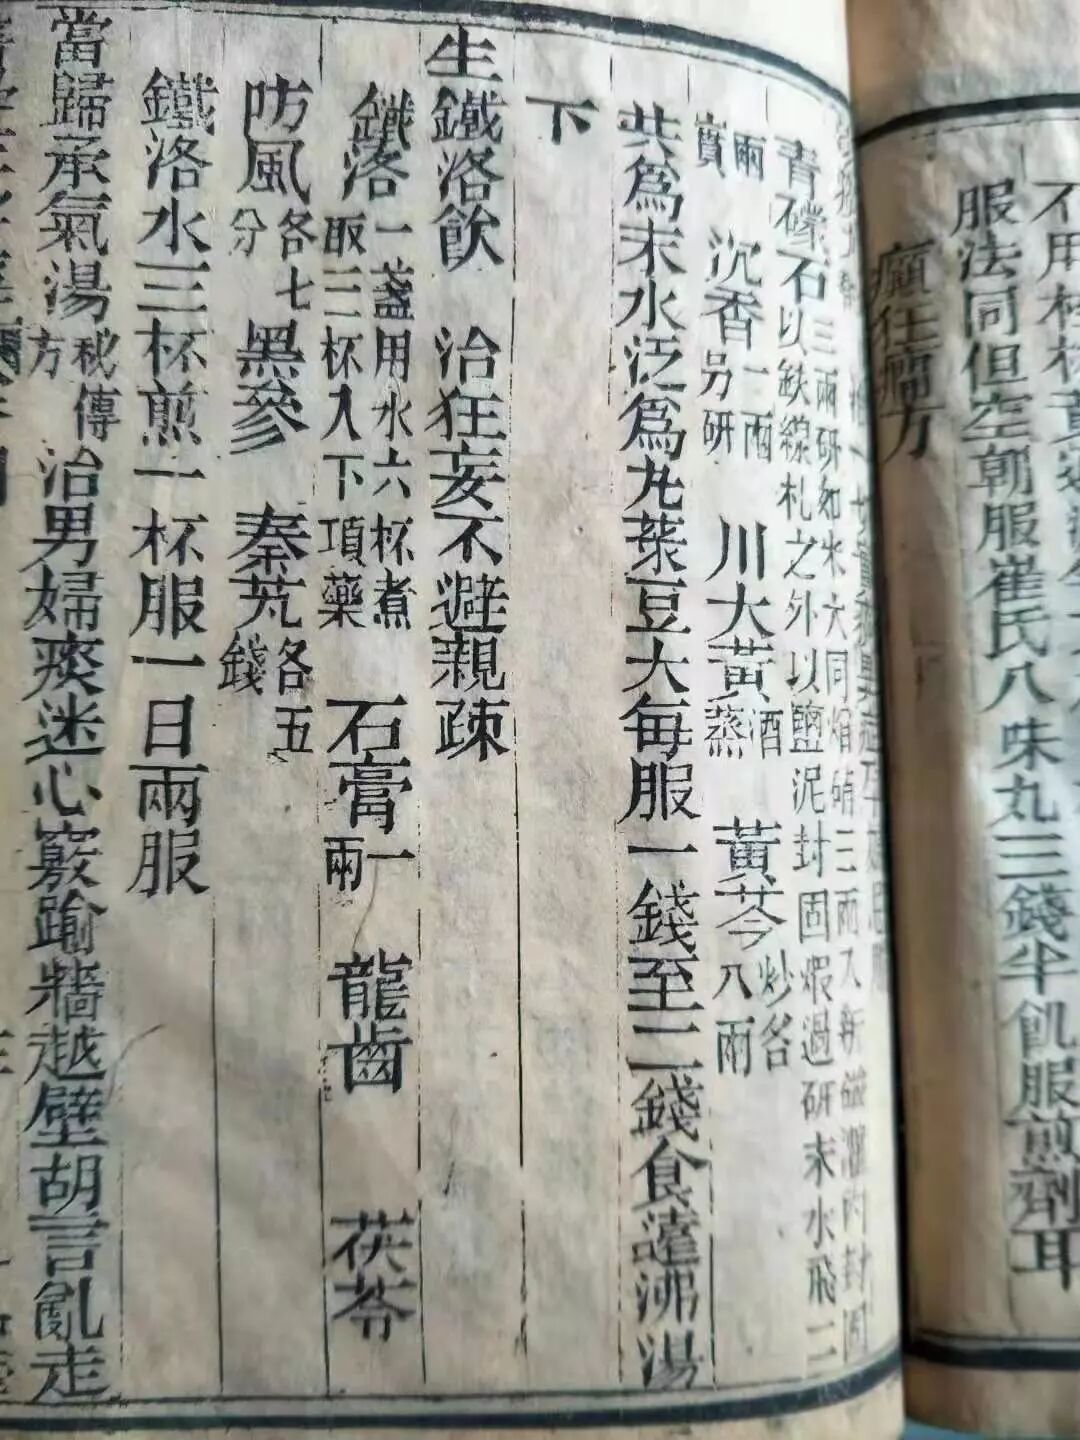 不用桂枝
服法同但空朝服崔氏八味丸三錢半飢服煎劑耳
癲狂癇方
青礞石三兩研如米大同焰硝三兩入新磁確內封固
以鉄線札之外以鹽泥封固煆過研末水飛二
兩實 沉香一兩另研 川大黃酒蒸 黃芩炒各八兩
共為末水泛為丸菉豆大每服一錢至二錢食遠沸湯
下
生鐵洛飲 治狂妄不避親疎
鐵洛一盞用水六杯煮取三杯入下項藥 石膏一兩 龍齒 茯苓
防風各七分 黑參 秦艽各五錢
鐵洛水三杯煎一杯服一日兩服
當歸承氣湯秘傳方 治男婦痰迷心竅踰牆越壁胡言亂走